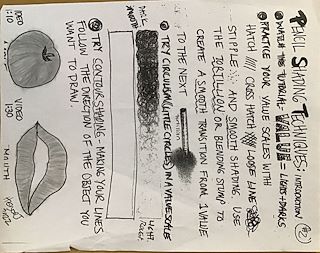 PENCIL SHADING TECHNIQUES: INTRODUCTION
① WATCH THIS TUTORIAL. VALUE = LIGHTS + DARKS
② PRACTICE YOUR VALUE SCALES WITH
HATCH //// CROSS HATCH LOOSE LINE
STIPPLE AND SMOOTH SHADING. USE
THE TORTILLON OR BLENDING STUMP TO
CREATE A SMOOTH TRANSITION FROM 1 VALUE
TO THE NEXT
③ TRY CIRCULISM (LITTLE CIRCLES) IN A VALUE SCALE
DARK
SMOOTH
LIGHT
ROUGH
④ TRY CONTOUR SHADING - MAKING YOUR LINES
FOLLOW THE DIRECTION OF THE OBJECT YOU
WANT TO DRAW.
VIDEO
1:10
VIDEO
1:30
MOUTH
VIDEO